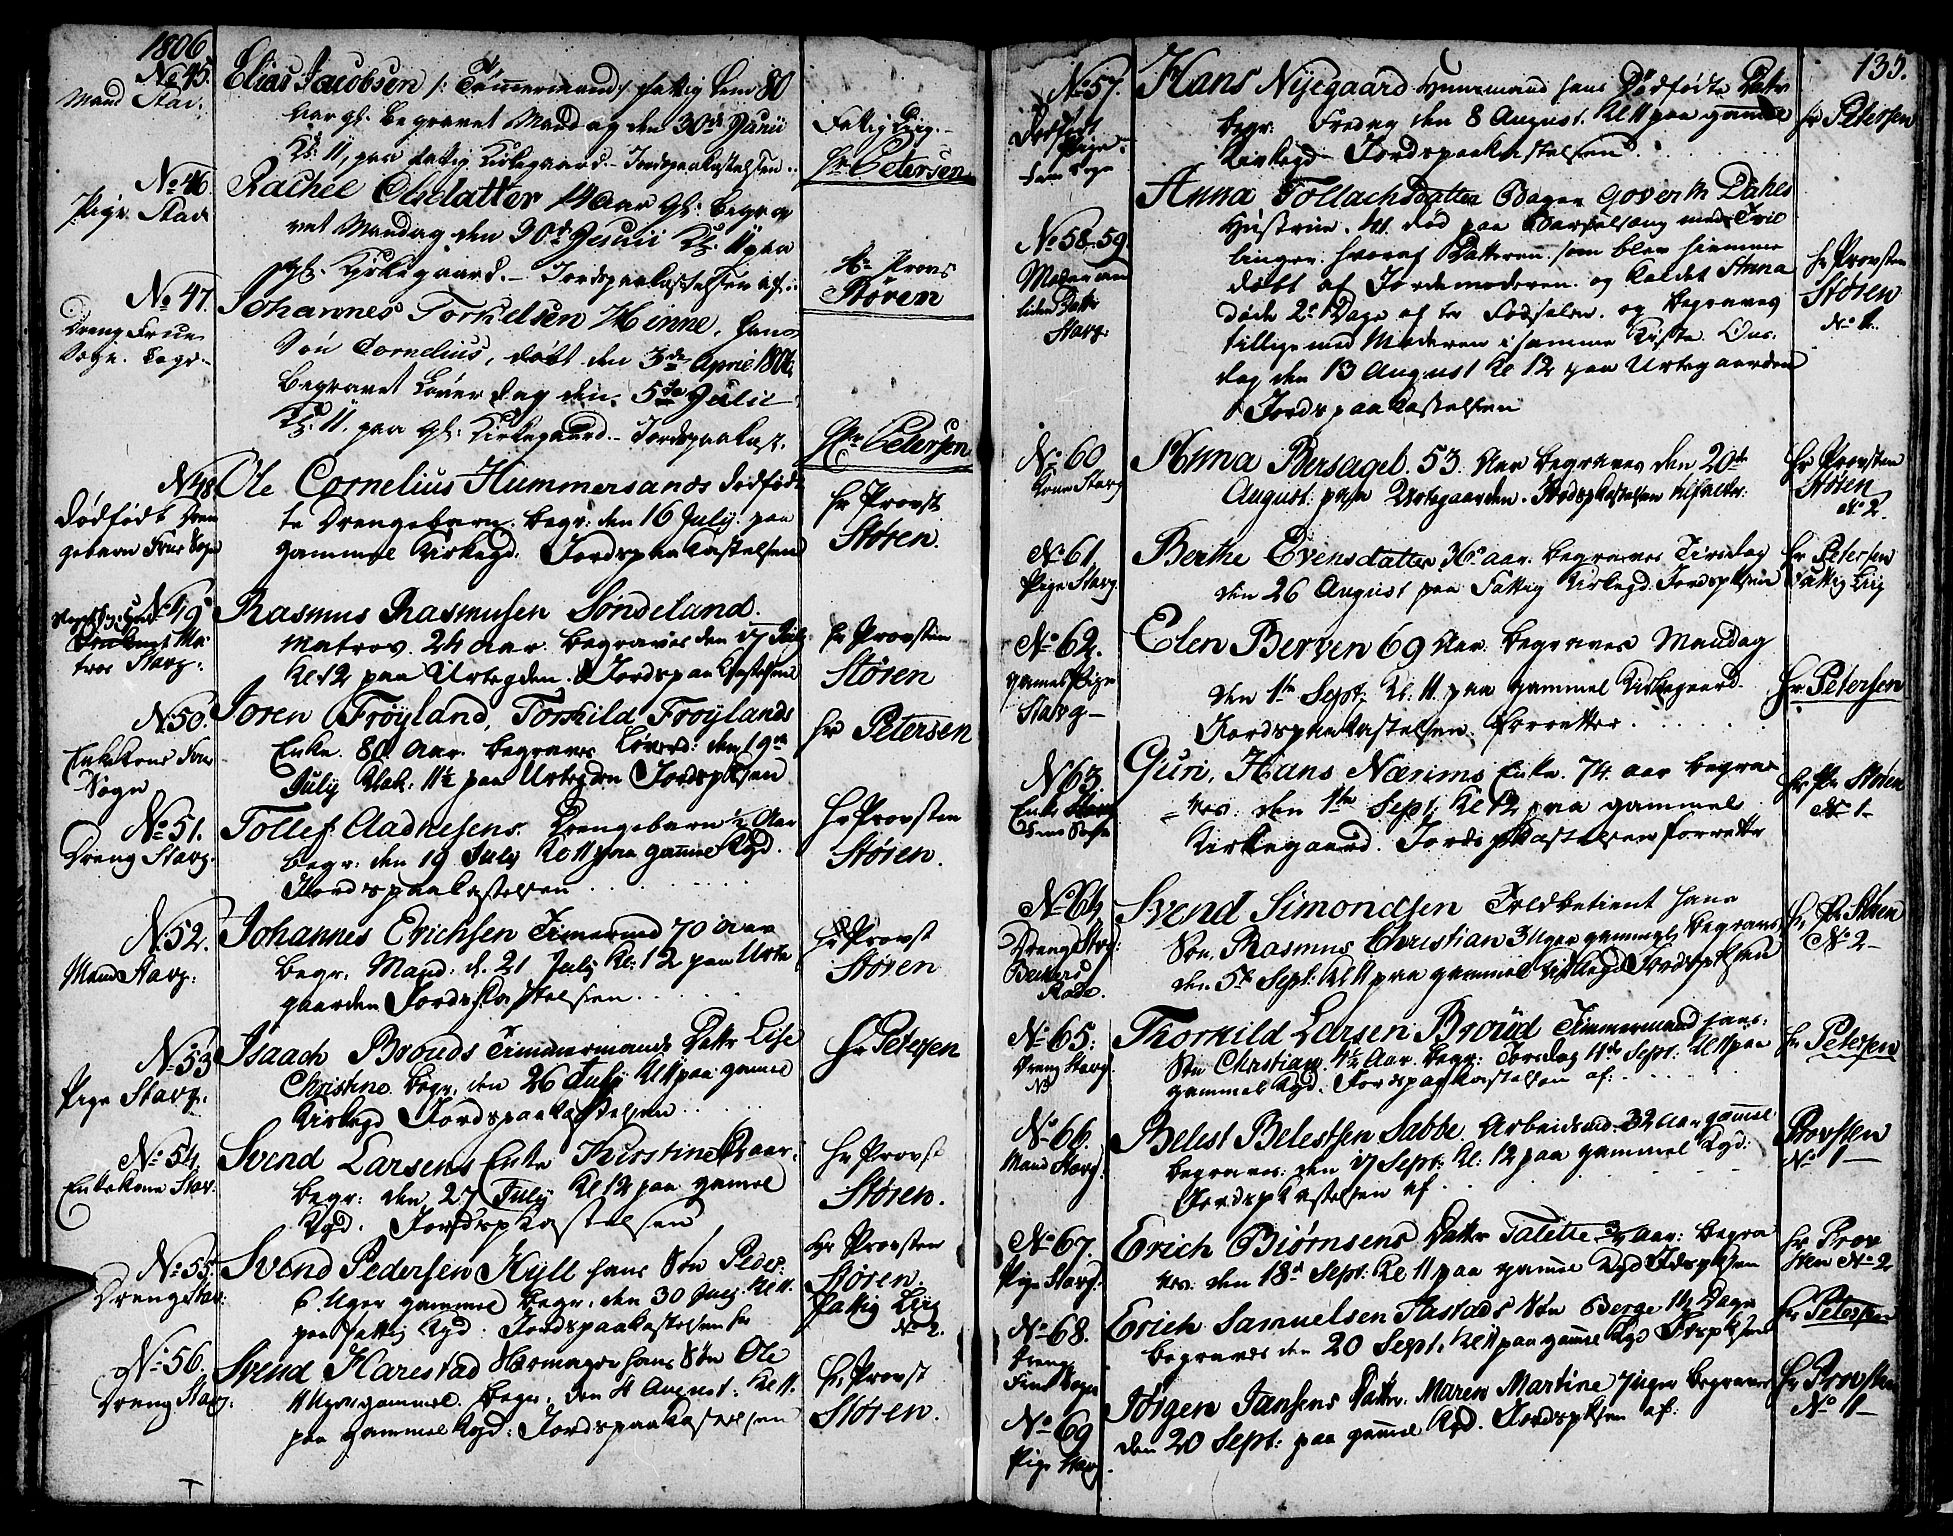 1806
No 45.
Mand Stav.
Elias Jacobsen /: Tømmermand :/ fattig Lem 80
Aar gl. Begravet Mandag den 30de Junii
Kl. 11, paa fattig Kirkegaard - Jordspaakastelsen
Fattig Liig.
Hr Petersen
No 46.
Pige Stav.
Rachel Olsdatter 14 Aar gl. Begra
vet Mandag den 30de Junii Kl. 11 paa
gl. Kirkegaard. - Jordspaakastelsen af:
Hr Provs
Støren
No 47.
Dreng Frue
Sogn.
Johannes Torkelsen Hinne, hans
Søn Cornelius, døbt den 3de April 1806
Begravet Løverdag den 5te Julii
Kl. 11. paa gl. Kirkegaard. - Jordspaakast.
Hr Petersen
No 48
Dødfødt Dren
gebarn Frue Sogn
Ole Cornelius Hummersands dødfød
te Drengebarn. Begr: den 16 July paa
gammel Kirkegd. Jordspaakastelsen
Hr Provst
Støren.
No 49
Matros Stavg.
Rasmus Rasmusen Søndeland.
Matros. 24 Aar. Begraves den 17 July
Kl 12 paa Urtegden. Jordspaakastelsen
Hr Provsten
Støren
No 50.
Enkekone Frue
Sogn
Joren Frøyland, Torkild Frøylands
Enke. 80 Aar. Begraves Løverd: den 19de
July Klok. 11½ paa Urtegden Jordspksen
Hr Petersen
No 51.
Dreng Stavg.
Tollef Aadnesens Drengebarn ½ Aar
begr: den 19 July Kl 11 paa gamel Kgd.
Jordspaakastelsen
Hr Provsten
Støren.
No 52.
Mand Stavg.
Johannes Erichsen Timermd 70 Aar
begr. Mand: d. 21 July Kl: 12 paa Urte
gaarden Jordspkastelsen
Hr Provst
Støren
No 53
Pige Stavg.
Isaach Brouds Timmermands Datter Lise
Christine begr. den 26 July Kl 11 paa gamel
Kirkegd Jordspaakastelsen
Hr Petersen
No 54.
Enkekone Stav:
Svend Larsens Enke Kirstine Aar:
begr: den 27 July Kl 12 paa gamel
Kgd. Jordspkastelsen
Hr Provst
Støren.
No 55.
Dreng Stav:
Svend Pedersen Kyll hans Søn Peder
6 Uger gammel begr: den 30 July Kl 11.
paa fattig Kgd: Jordspaakastelsen
Hr Provsten
Støren.
Fattig Liig
No 2.
No 56.
Dreng Stavg.
Svend Harestad hans Søn Ole
11 Uger gammel. begr: den 4 August: Kl 11.
paa gammel Kgd: Jordspaakastelsen
Hr Provst
Støren.
135.
No 57.
Dødfødt
Pige
Frue Sogn
Hans Nyegaard hans Dødfødte Datter
begr: Fredag den 8 August. Kl 11 paa gammel
Kirkegd Jordspaakastelsen.
Hr Petersen
No 58-59.
Moder and
liden Datter
Stavg:
Anna Tollachsdatter Bager Goverth Dahls
Hustrue. 41 død paa Barselseng med Tvil
linger. hvoraf Datteren, som blev hiemme
døbt af Jordemoderen. og kaldet Anna
døde 2de Dage efter Fødselen. og begraves
tillige med Moderen i samme Kiste Ons.
dag den 13 August Kl 12 paa Urtegaarden
Jordspaakastelsen
Hr Provsten
Støren
No 1.
No 60
Kone Stavg
Anna Bersagel. 53. Aar begraves den 20de
August: paa Urtegaarden. Jordspkastelsen
Hr Provsten
Støren
No 2.
No 61.
Pige Stavg.
Berthe Evensdatter 36 aar. begraves Tirsdag
den 26 August paa Fattig Kirkegd. Jordspksen
Hr Petersen
Fattig Liig
No 62.
gamel Pige
Stavg -
Elen Berven 69 Aar. begraves Mandag
den 1te Sept: Kl. 11. paa gammel Kirkegaard.
Jordspaakastelsen forretter.
Hr Petersen
No 63
Enke
Frue Sogn
Guri, Hans Nærims Enke. 74 aar begra
ves. den 1te Sept: Kl 12 paa gammel
Kirkegaard. Jordspkastelsen forrettr
Hr Pr Støren
No 1-
No 64
Dreng Stavg:
Svend Simondsen Toldbetient hans
Søn, Rasmus Christian 3 Uger gammel begraves
den 5te Sept: Kl 11 paa gammel Kirkegd Jordspksen
Hr Pr Støren
No 2-
No 65.
Dreng Stavg.
Thorkild Larsen Broud Timmermand hans
Søn Christian 4½ Aar begr: Torsdag 11te Sept: Kl 11 paa
gammel Kgd. Jordspaakastelsen af:
Hr Petersen
No 66.
Mand Stavg.
Belest Belestsen Sabbe. Arbeidsmd. 32 Aar gamel
begraves: den 17 Sept: Kl: 12 paa gammel Kgd:
Jordspkastelsen af
Provsten
No 1-
No 67.
Pige Stavg.
Erich Biørnsens Datter Talette ¾ Aar: begra
ves. den 18de Sept: Kl 11 paa gamel Kgd Jdspksen
Hr Prov
sten No 2
No 68.
Dreng
Frue Sogn
Erich Samuelsen Tastads Søn Berge 14 Dage
begraves den 20 Sept: Kl 11 paa gamel Kgd Jdspksen
Hr Petersen
No 69
Pige Stavg
Jørgen Jansens Datter. Maren Martine 7 uger begraves
den 20 Sept: paa gamel Kgd. Jordspksen af:
Hr Provsten
No 1-